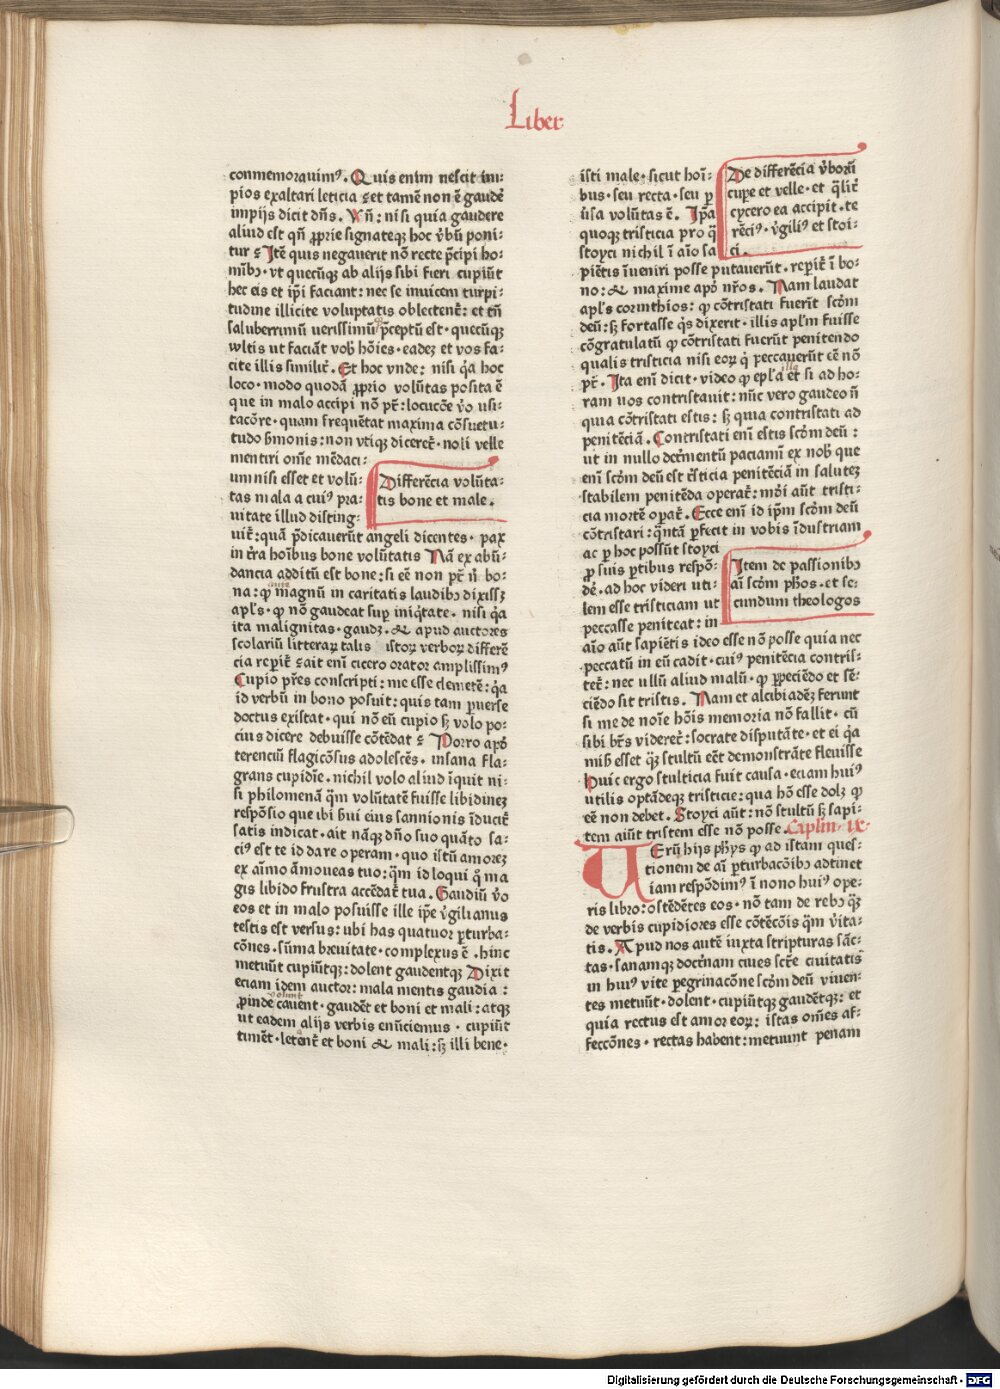 Liber
conmemorauimꝰ. Quis enim nescit im-
pios exaltari leticia ⁊ et tamē non ē gaudē
impijs dicit dn̄s. Vn̄: nisi quia gaudere
aliud est qn̄ ꝓprie signateqꝫ hoc v̄bū poni-
tur ⁊ Itē quis negauerit nō recte p̄cipi ho-
mībꝫ. vt quecūqꝫ ab alijs sibi fieri cupiūt
hec eis et ip̄i faciant: nec se inuicem turpi-
tudine illicite voluptatis oblectent̄: et tn̄
saluberrimū uerissimū p̄ceptū est. quecūqꝫ
wltis ut faciāt vob̄ hōies. eadeꝫ et vos fa-
cite illis similit̄. Et hoc vnde: nisi q̄a hoc
loco. modo quodā ꝓprio volūtas posita ē
que in malo accipi nō pt̄: locucōe v̄o usi-
tacōre. quam frequētat maxima cōsuetu-
tudo s̄monis: non vtiqꝫ diceret̄. noli velle
mentiri om̄e mēdaci-
um nisi esset et volū-
tas mala a cuiꝰ pra-
uitate illud disting-
Differēcia volūta-
tis bone et male.
uit̄: quā p̄dicauerūt angeli dicentes. pax
in t̄ra hoībus bone volūtatis Nā ex abū-
dancia additū est bone: si eē non pt̄ n̄ bo-
na: ꝙ magnū in caritatis laudibꝫ dixissꝫ
apl's. ꝙ nō gaudeat suꝑ iniq̄tate. nisi q̄a
ita malignitas. gaudꝫ. & apud auctores
scolariū litteraꝝ talis istoꝝ verboꝝ differē
cia reperit̄ ⁊ ait enī cicero orator amplissimꝰ
Cupio pr̄es conscripti: me esse clemetē: q̄a
id verbū in bono posuit: quis tam ꝑuerse
doctus existat. qui nō eū cupio sꝫ volo po-
cius dicere debuisse cōtēdat ⁊ Porro apd̄
terenciū flagicōsus adolescēs. insana fla-
grans cupidīe. nichil volo aliud īquit ni-
si philomenā q̄m volūtatē fuisse libidineꝫ
respōsio que ibi s̄ui eius sannionis īducit̄
satis indicat. ait nāqꝫ dn̄o suo quāto sa-
ciꝰ est te id dare operam. quo istū amoreꝫ
ex aīmo āmoueas tuo: q̄m id loqui q̊ ma
gis libido frustra accēdat̄ tua. Gaudiū v̄o
eos et in malo posuisse ille ip̄e v̄gilianus
testis est versus: ubi has quatuor ꝑturba-
cōnes. sūma breuitate. complexus ē. hinc
metuūt cupiūtqꝫ: dolent gaudentqꝫ Dixit
eciam idem auctor: mala mentis gaudia:
ꝓinde cauent. gaudēt et boni et mali: atqꝫ
ut eadem alijs verbis enūciemus. cupiūt
timēt. letent̄ et boni & mali: sꝫ illi bene.
isti male. sicut hoī-
bus. seu recta. seu ꝑ
ūsa volūtas ē. Ip̄a
quoqꝫ tristicia pro q̄
stoyci nichil ī aīo sa
De differēcia v̄borū
cupe et velle. et q̄lit̄
cycero ea accipit. te
rēciꝰ. v̄giliꝰ et stoi-
ci.
piētis īueniri posse putauerūt. reperit̄ ī bo-
no: & maxime apd̄ nr̄os. Nam laudat
apl's corinthios: ꝙ cōtristati fuerīt scd̄m
deū: sꝫ fortasse q̄s dixerit. illis apl'm fuisse
cōgratulatū ꝙ cōtristati fuerūt penitendo
qualis tristicia nisi eoꝝ q̄ peccauerūt eē nō
pt̄. Ita enī dicit. video ꝙ epl'a illa et si ad ho-
ram uos contristauit: nūc vero gaudeo n̄
quia cōtristati estis: sꝫ quia contristati ad
penitēciā. Contristati enī estis scd̄m deū:
ut in nullo detrīmentū paciamī ex nob̄ que
enī scd̄m deū est t̄sticia penitēciā in saluteꝫ
stabilem penitēda operat̄: mōi aūt tristi-
cia mortē oꝑat̄. Ecce enī id ip̄m scd̄m deū
cōtristari: q̄ntā ꝑfecit in vobis īdustriam
ac ꝑ hoc possūt stoyci
ꝓ suis ꝑtibus respō-
dē. ad hoc videri uti-
lem esse tristiciam ut
peccasse peniteat: in
Item de passionibꝫ
aī scd̄m ph̄os. et se-
cundum theologos
aīo aūt sapiētis ideo esse nō posse quia nec
peccatū in eū cadit. cuiꝰ penitēcia contris-
tet̄: nec ullū aliud malū. ꝙ ꝑpeciēdo et sē-
ciēdo sit tristis. Nam et alcibiadeꝫ ferunt
si me de noīe hōis memoria nō fallit. cū
sibi bt̄s videret̄: socrate disputāte. et ei q̄a
mis̄ esset q̄ꝫ stultū eēt demonstrāte fleuisse
huic ergo stulticia fuit causa. eciam huiꝰ
utilis optādeqꝫ tristicie: qua hō esse dolꝫ ꝙ
eē non debet. Stoyci aūt: nō stultū sꝫ sapi-
tem aiūt tristem esse nō posse. Capl'm. ix.
UErū hijs ph̄ys ꝙ ad istam ques-
tionem de aī ꝑturbacōibꝫ adtinet
iam respōdimꝰ ī nono huiꝰ ope-
ris libro: ostēdētes eos. nō tam de rebꝫ q̄ꝫ
de verbis cupidiores esse cōtēcōis q̄m v̄ita-
tis. Apud nos autē iuxta scripturas sāc-
tas. sanamqꝫ doct̄nam ciues sct̄e ciuitatis
in huiꝰ vite ꝑegrinacōne scd̄m deū viuen-
tes metuūt. dolent. cupiūtqꝫ gaudētqꝫ: et
quia rectus est amor eoꝝ: istas om̄es af-
feccōnes. rectas habent: metuunt penam
Digitalisierung gefördert durch die Deutsche Forschungsgemeinschaft - DFG